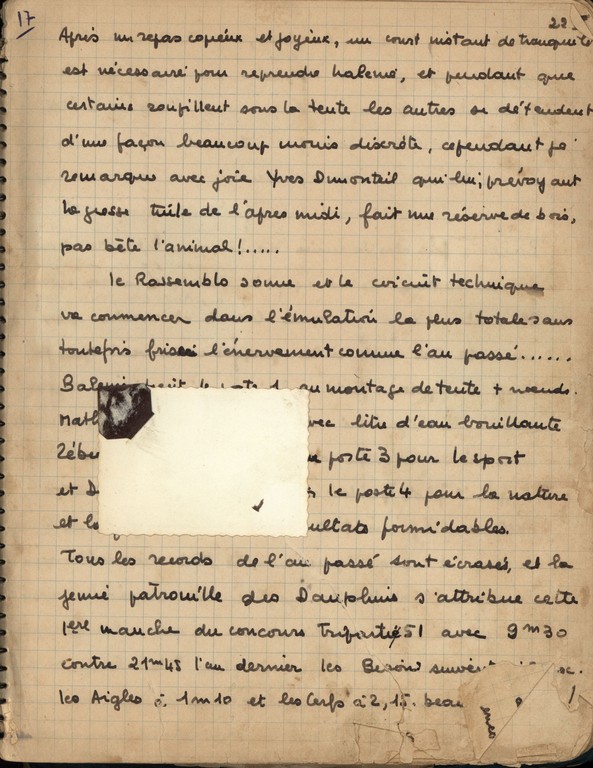 17
22
Après un repas copieux et joyeux, un court instant de tranquilité
est nécessaire pour reprendre haleine, et pendant que
certains roupillent sous la tente les autres se détendent
d'une façon beaucoup moins discrète, cependant je
remarque avec joie Yves Dumonteil qui lui, prévoyant
la grosse tuile de l'après midi, fait une réserve de bois,
pas bête l'animal!.....
le Rassemblo sonne et le circuit technique
va commencer dans l'émulation la plus totale sans
toutefois friser l'énervement comme l'an passé......
au montage de tente + nœuds.
avec litre d'eau bouillante
poste 3 pour le sport
et le poste 4 pour la nature
et formidables.
Tous les records de l'an passé sont écrasés, et la
jeune patrouille des Dauphins s'attribue cette
1ère manche du concours Tripartie 51 avec 9m30
contre 21m45 l'an dernier les Bisons suivent
les Aigles à 1m10 et les Cerfs à 2,15.